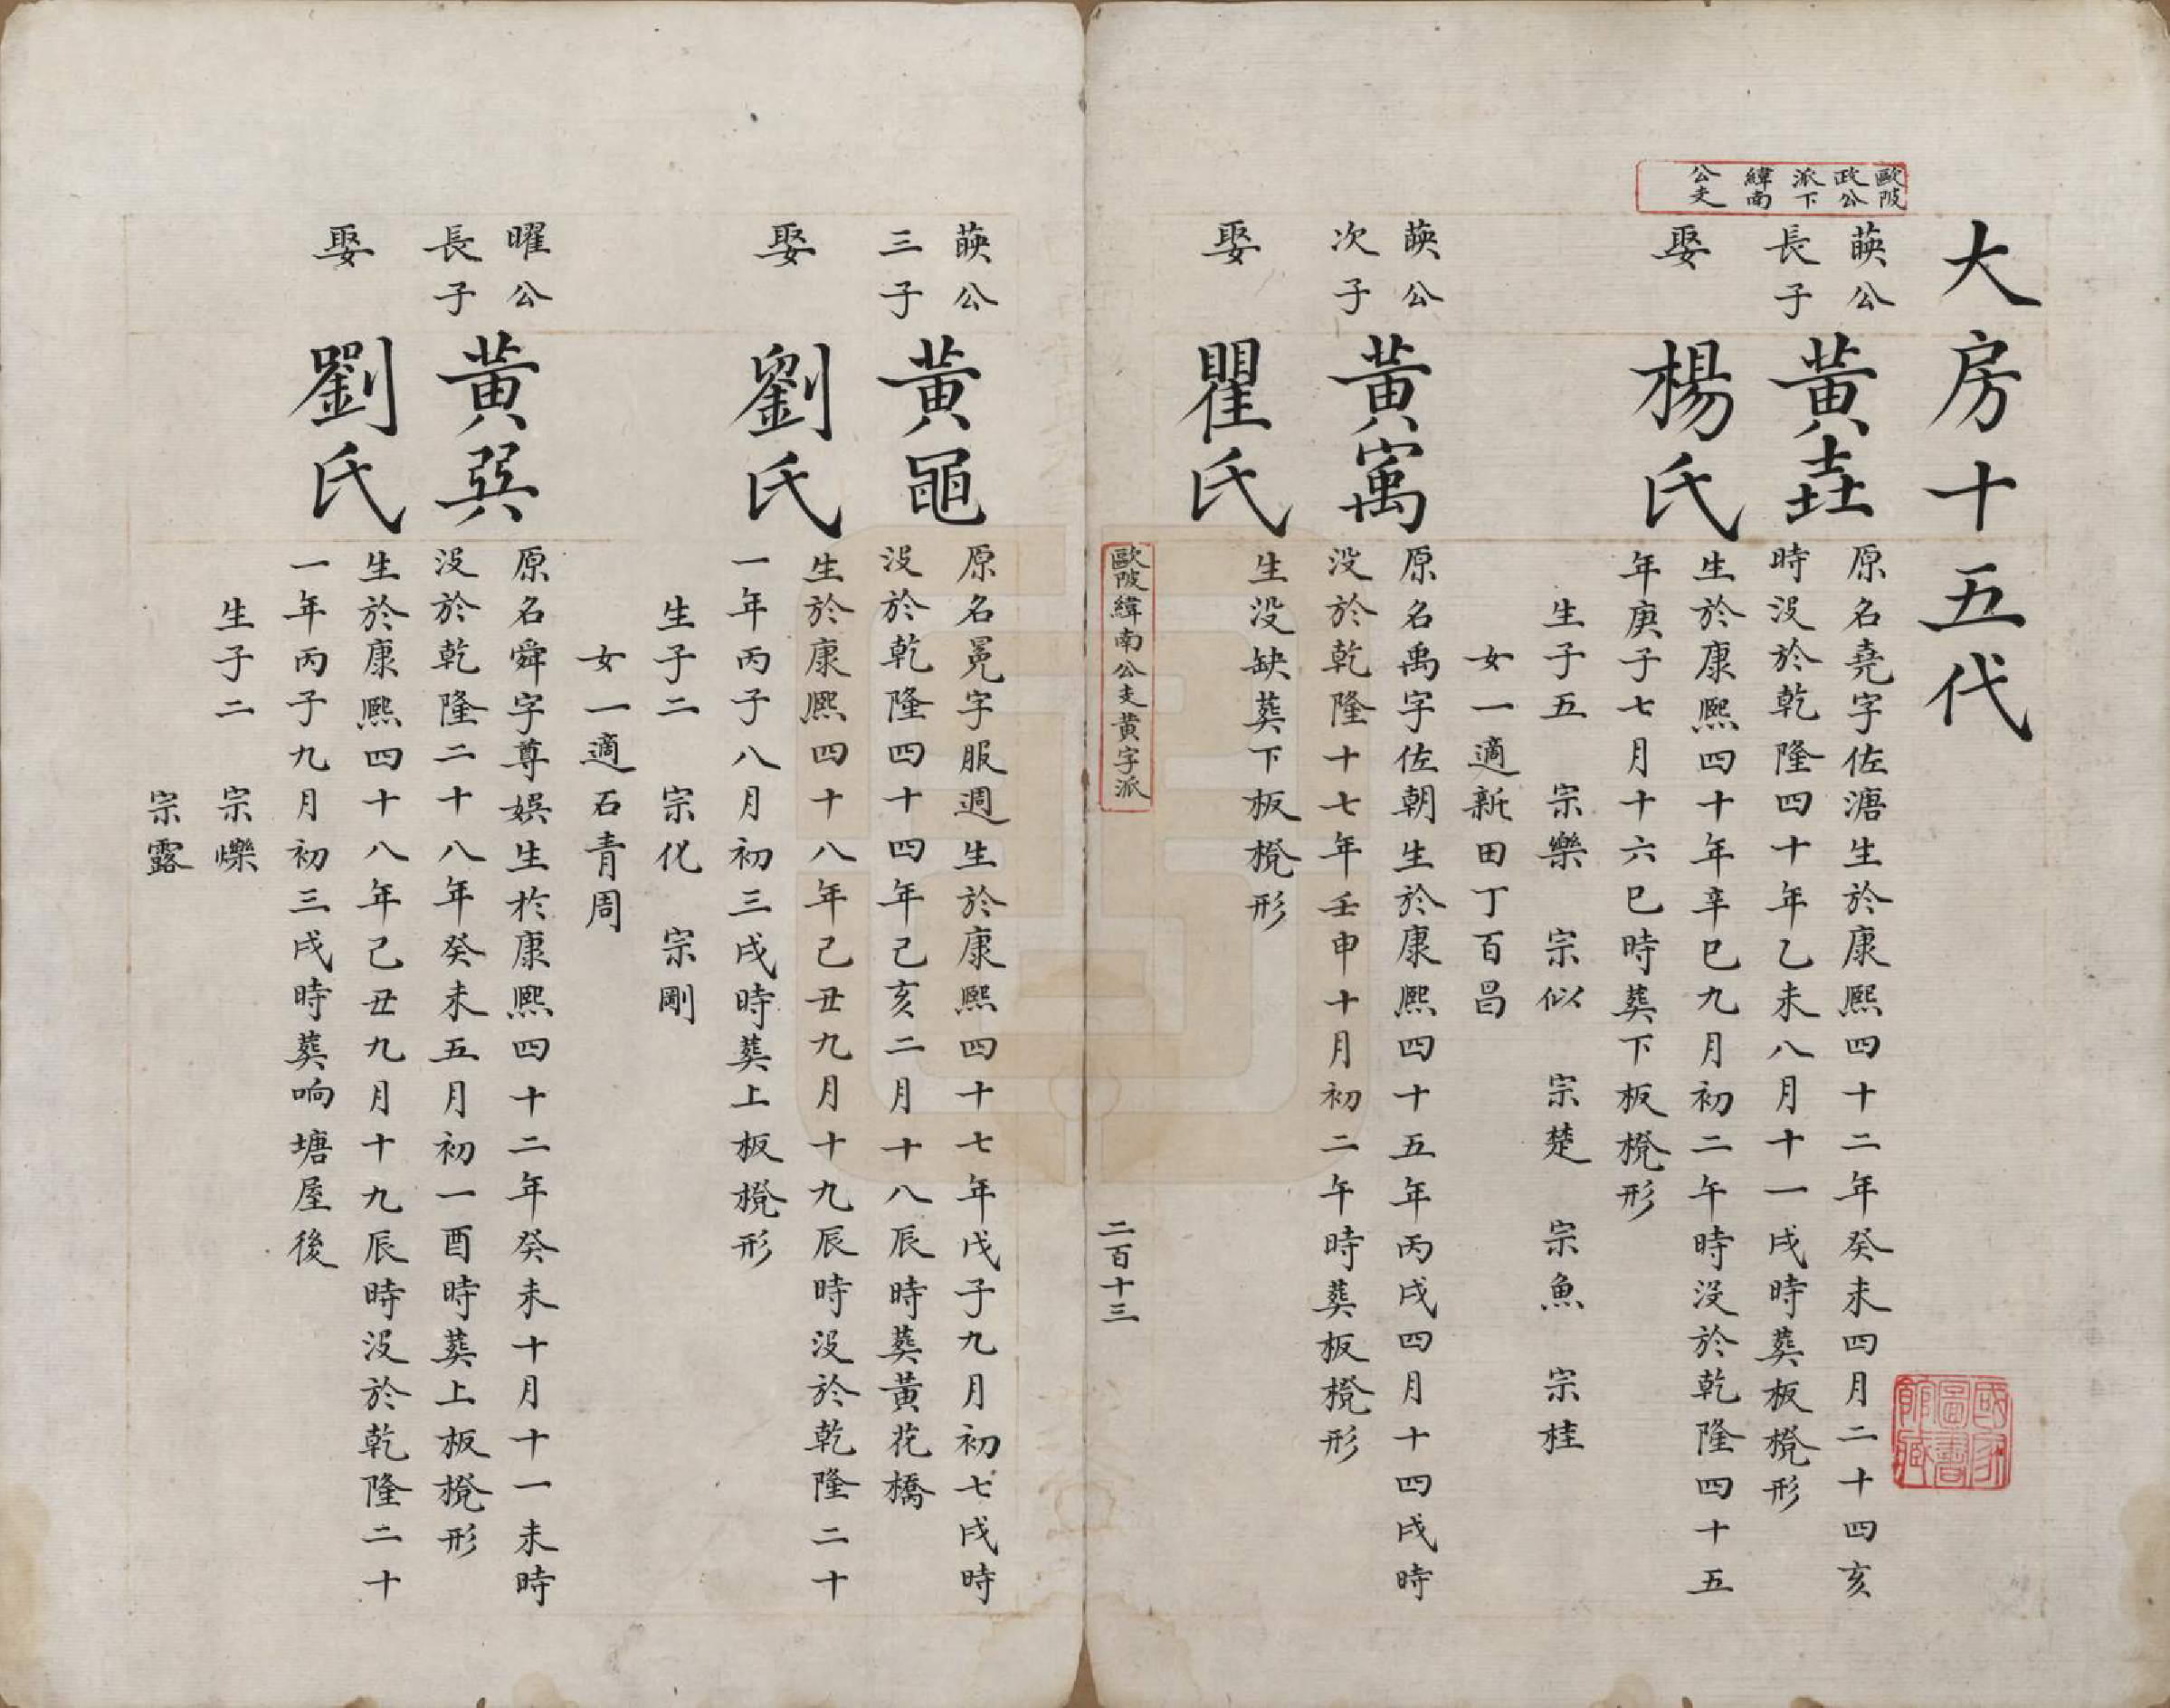 大房十五代
歐陂
政公
派下
緯南
公支
葓公
長子
黃垚
原名堯字佐溏生於康熙四十二年癸未四月二十四亥
時沒於乾隆四十年乙未八月十一戌時葬板櫈形
娶
楊氏
生於康熙四十年辛巳九月初二午時沒於乾隆四十五
年庚子七月十六巳時葬下板櫈形
生子五 宗樂 宗似 宗楚 宗魚 宗桂
女一適新田丁百昌
葓公
次子
黃寓
原名禹字佐朝生於康熙四十五年丙戌四月十四戌時
沒於乾隆十七年壬申十月初二午時葬板櫈形
娶
瞿氏
生沒缺葬下板櫈形
歐陂緯南公支黃字派
二百十三
葓公
三子
黃黽
原名冕字服週生於康熙四十七年戊子九月初七戌時
沒於乾隆四十四年己亥二月十八辰時葬黃花橋
娶
劉氏
生於康熙四十八年己丑九月十九辰時沒於乾隆二十
一年丙子八月初三戌時葬上板櫈形
生子二 宗化 宗剛
女一適石青周
曜公
長子
黃巽
原名舜字尊娛生於康熙四十二年癸未十月十一未時
沒於乾隆二十八年癸未五月初一酉時葬上板櫈形
娶
劉氏
生於康熙四十八年己丑九月十九辰時沒於乾隆二十
一年丙子九月初三戌時葬响塘屋後
生子二 宗爍
宗露
國家
圖書
館藏